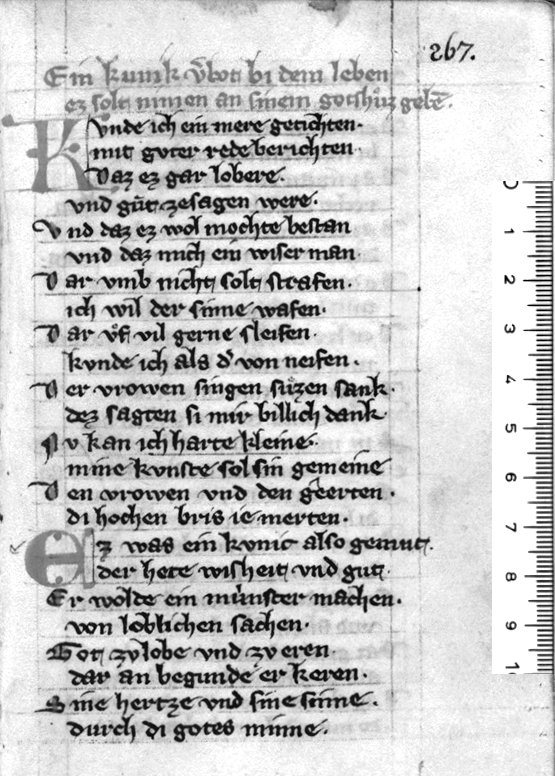 267.
Ein kunik v̾bot bi dem leben
ez solt nimen an sinem gotshůz gebē.
Kvnde ich ein mere getichten.
mit gvter rede berichten
Daz ez gar lobere.
vnd gůt zesagen were.
Vnd daz ez wol mochte bestan
vnd daz mich ein wiser man
Dar vmb nicht solt strafen.
ich wil der sinne wafen.
Dar vf vil gerne sleifen.
kvnde ich als d̾ von neifen.
Der vrowen singen sůzen sank.
dez sagten si mir billich dank
Nv kan ich harte kleine.
mine kvnste sol sin gemeine
Den vrowen vnd den geerten.
di hochen bris ie merten.
Ez was ein kvnic also gemut.
der hete wisheit vnd gut.
Er wolde ein můnster machen.
von loblichen sachen.
Got zv lobe vnd zv eren.
dar an begunde er keren.
Sine hertze vnd sine sinne.
durch di gotes minne.
0
1
2
3
4
5
6
7
8
9